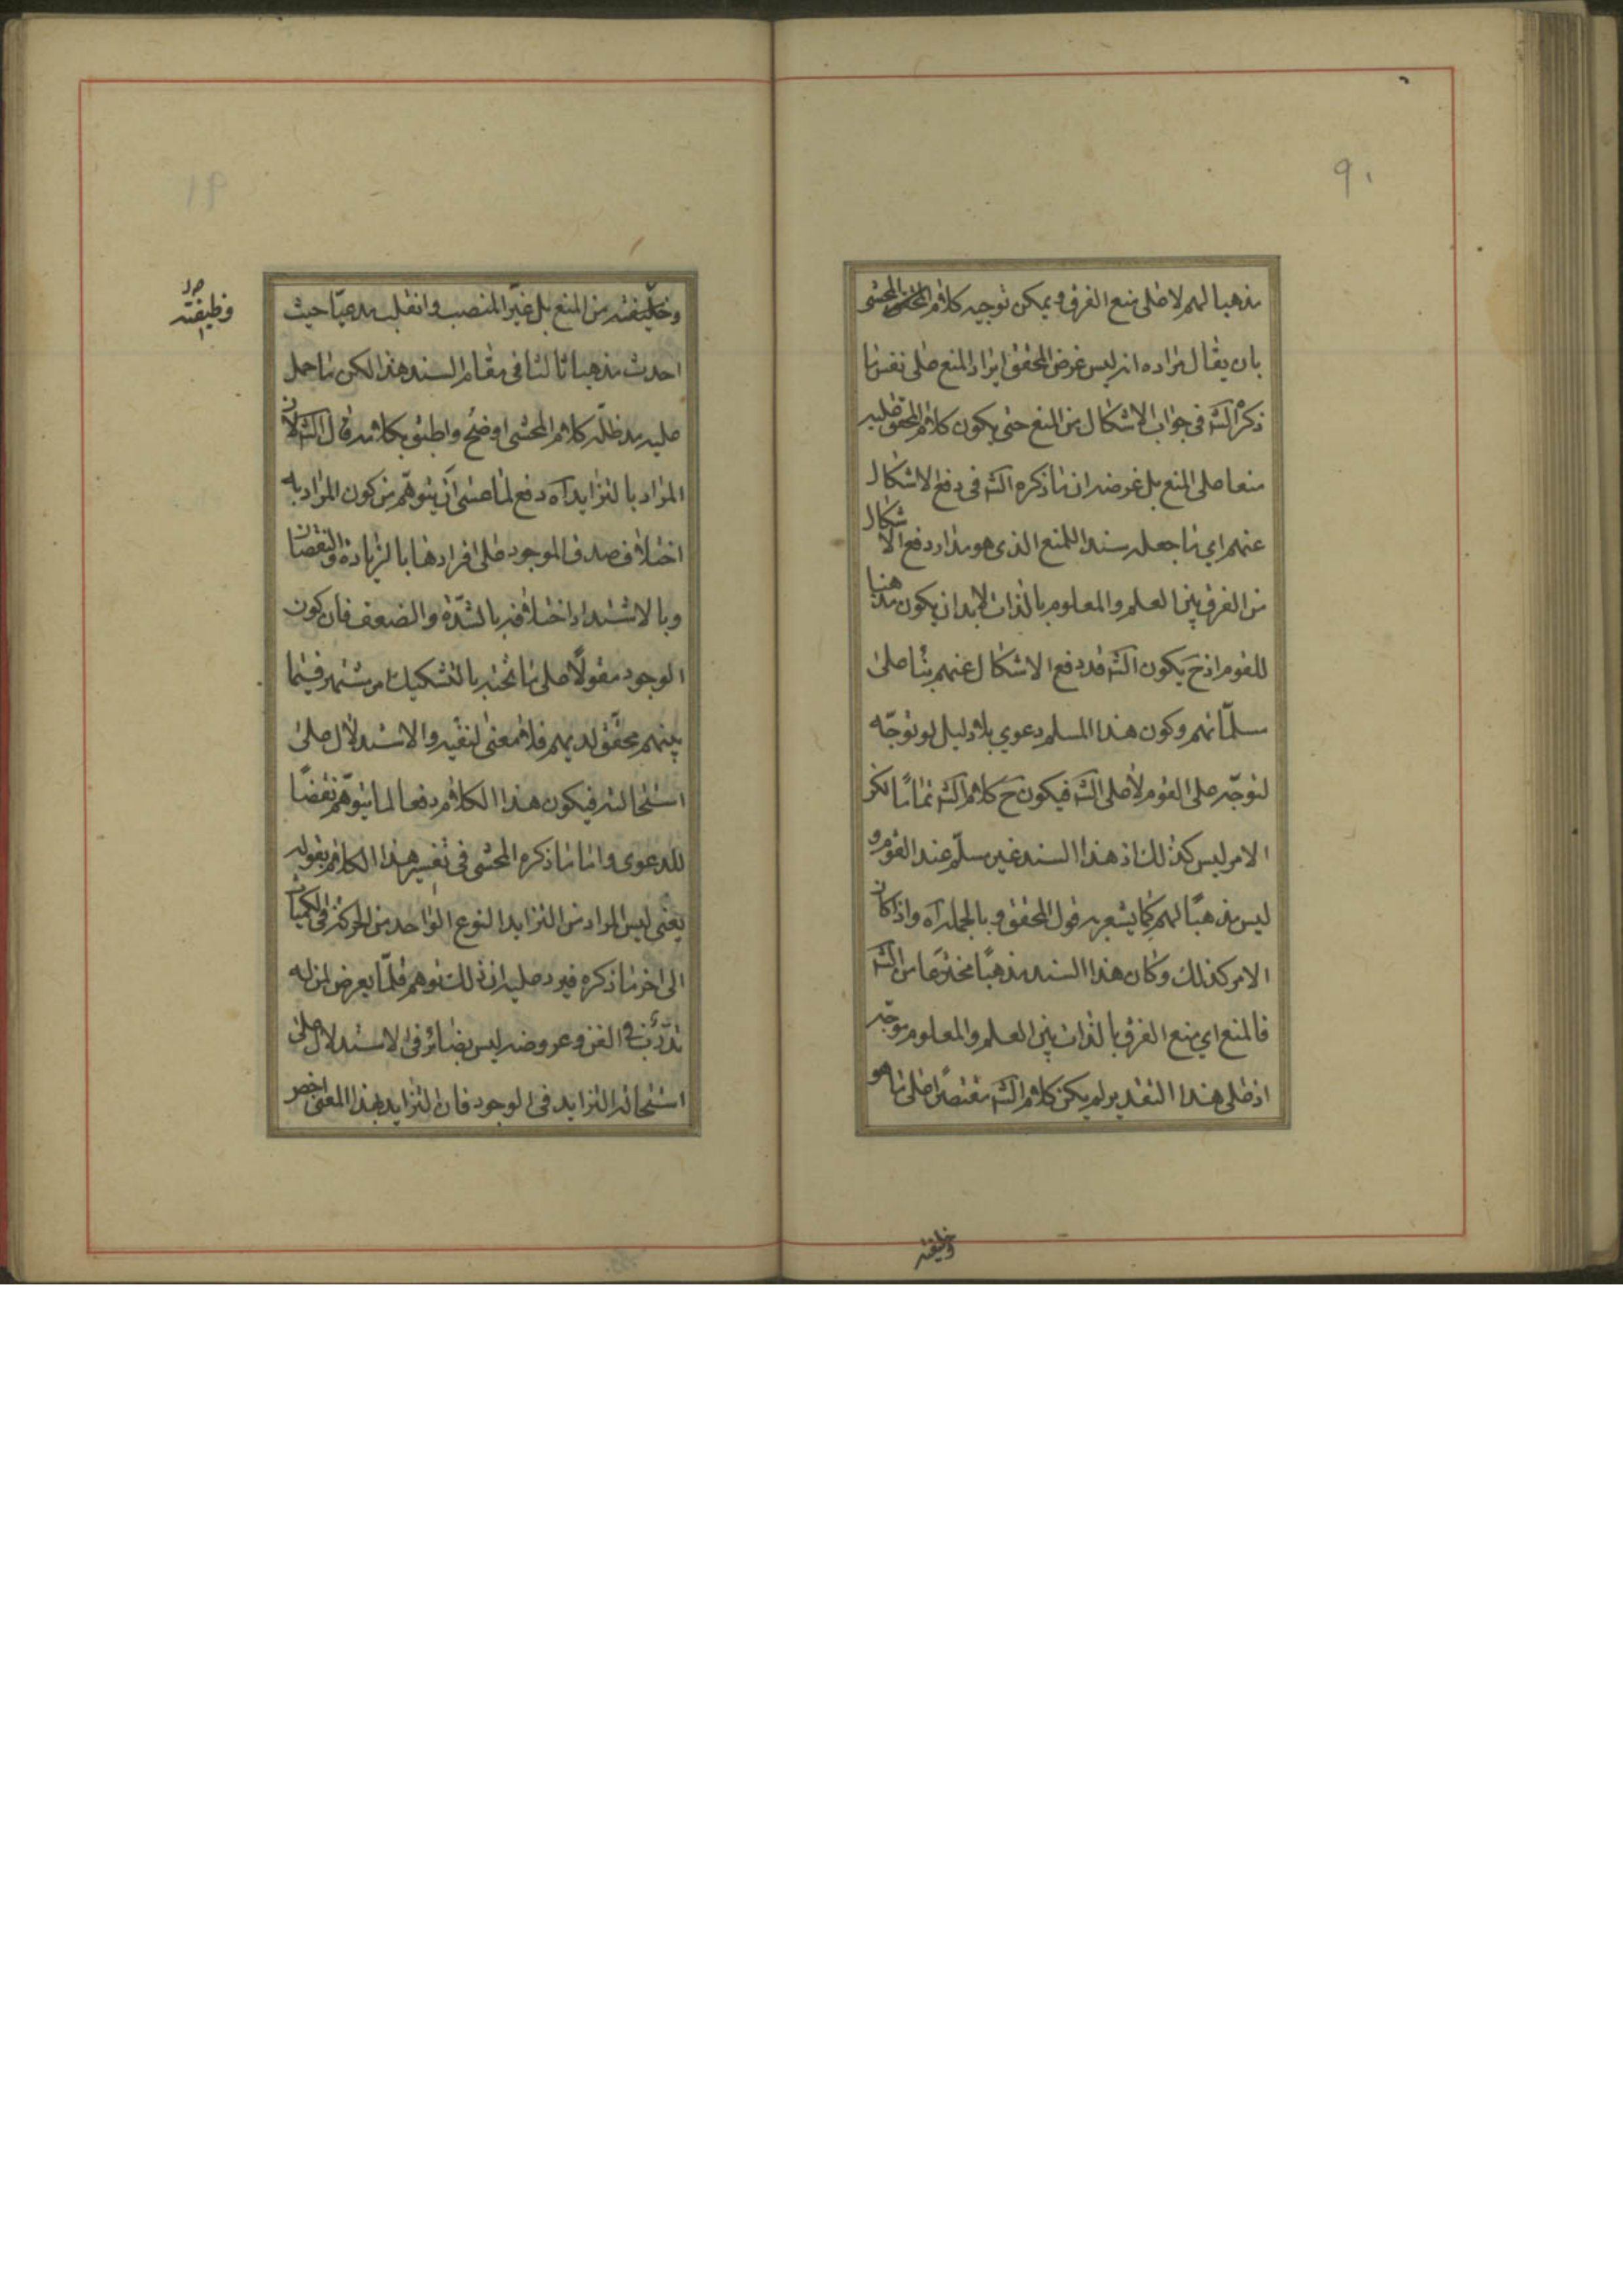 ٩٠
مذهبا لهم لا على منع الفرق ويمكن توجيه كلام المحشى
بان يقال مراده انه ليس غرض المحقق ايراد المنع على نفس ما
ذكره الش فى جواب الاشكال من المنع حتى يكون كلام المحقق عليه
منعا على المنع بل غرضه ان ما ذكره الش فى دفع الاشكال
عنهم اي ما جعله سندا للمنع الذى هو مدار دفع الاشكال
من الفرق بين العلم والمعلوم بالذات لابد ان يكون مذهبا
للقوم اذ ح يكون الش قد دفع الاشكال عنهم بناء على
مسلماتهم وكون هذا المسلم دعوي بلا دليل لو توجّه
لتوجّه على القوم لا على الش فيكون ح كلام الش تماما لكن
الامر ليس كذلك اذ هذا السند غير مسلّم عند القوم و
ليس مذهبًا لهم كما يشعر به قول المحقق وبالجملة آه واذا كان
الامر كذلك وكان هذا السند مذهبًا مخترعًا من الش
فالمنع اي منع الفرق بالذات بين العلم والمعلوم موجّه
اذ على هذا التقدير لم يكن كلام الش مقتصرًا على ما هو
وظيفته
٩١
وظيفته من المنع بل غيّر المنصب وانقلب مدعيّا حيث
وظيفته
احدث مذهبا ثالثا فى مقام السند هذا لكن ما حمل
عليه مد ظلّه كلام المحشى اوضح واطبق بكلامه قال الش لان
المراد بالتزايد آه دفع لما عسى ان يتوهّم من كون المراد به
اختلاف صدق الموجود على افرادها بالزيادة والنقصان
وبالاشتداد اختلافه بالشدّة والضعف فان كون
الوجود مقولًا على ما تحته بالتشكيك امر مشتهر فيما
بينهم محقّق لديهم فلا معنى لنفيه والاستدلال على
استحالته فيكون هذا الكلام دفعا لما يتوهّم نقضًا
للدعوى واما ما ذكره المحشى فى تفسير هذا الكلام بقوله
يعنى ليس المراد من التزايد النوع الواحد من الحركة فى الكميات
الى اخر ما ذكره فيرد عليه ان ذلك توهم قلّما يعرض لمن له
تدرّب فى الفن وعروضه ليس بضائر فى الاستدلال على
استحالة التزايد فى الوجود فان التزايد بهذا المعنى اخص